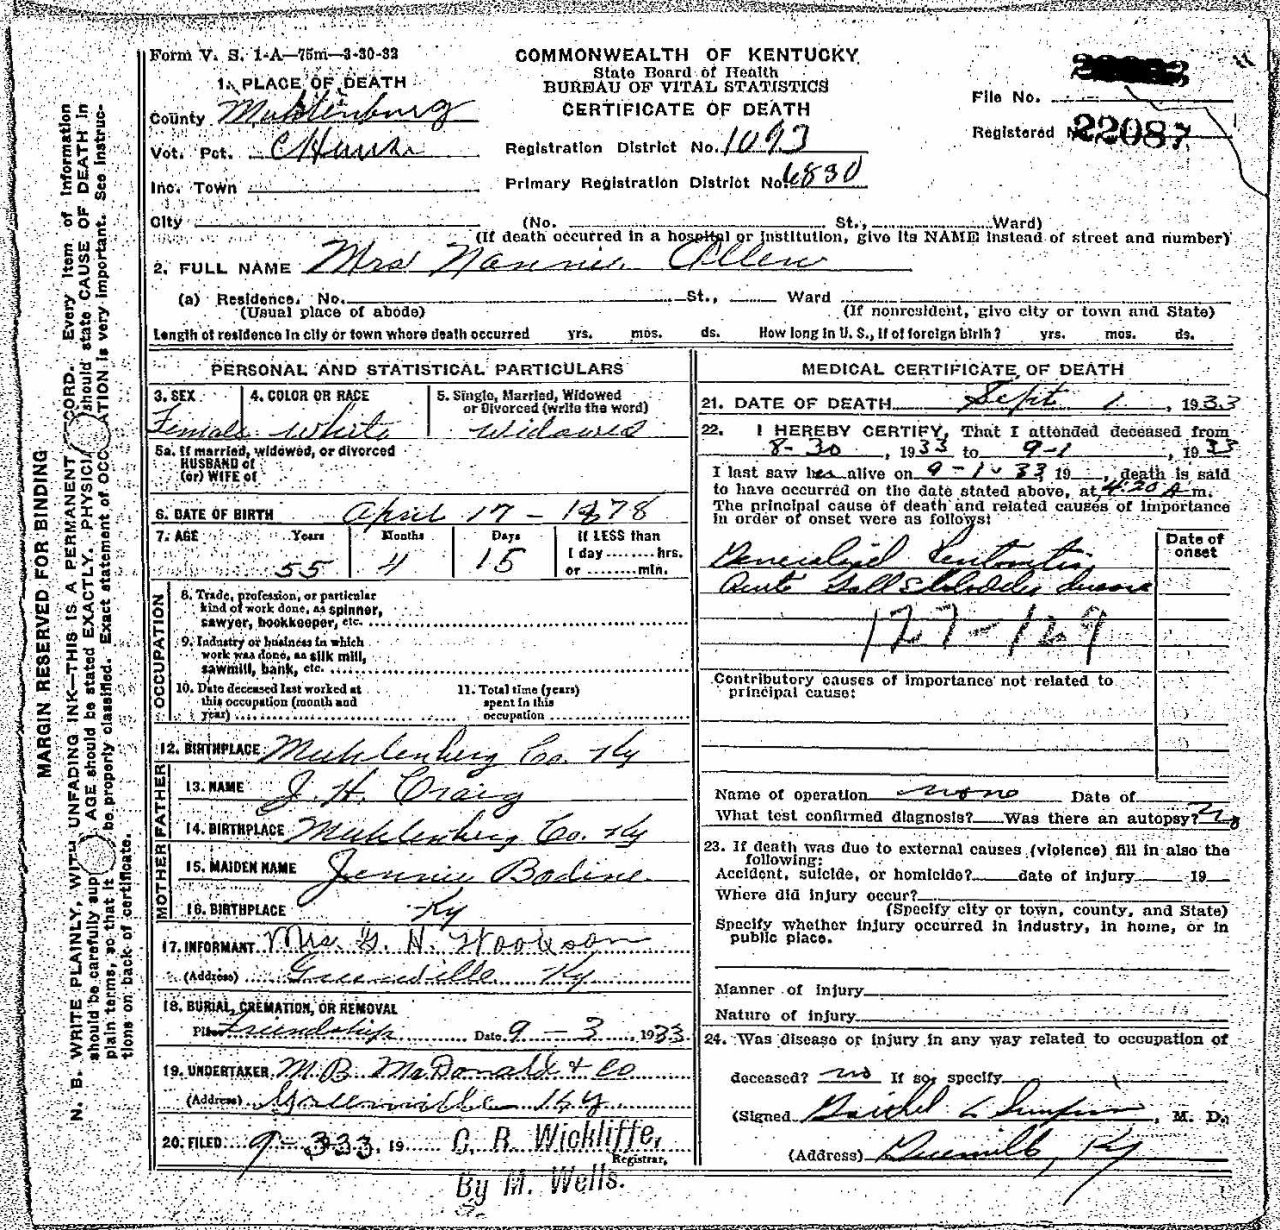 Form V. S. 1-A—75m—3-30-32
COMMONWEALTH OF KENTUCKY
State Board of Health
BUREAU OF VITAL STATISTICS
CERTIFICATE OF DEATH
File No.
Registered No. 22087
1. PLACE OF DEATH
County Muhlenburg
Vot. Pct.
Inc. Town
Registration District No. 1093
Primary Registration District No. 6830
City (No. St., Ward)
(If death occurred in a hospital or institution, give its NAME instead of street and number)
2. FULL NAME Mrs Nannie Allen
(a) Residence. No. St., Ward
(Usual place of abode) (If nonresident, give city or town and State)
Length of residence in city or town where death occurred yrs. mos. ds. How long in U. S., if of foreign birth? yrs. mos. ds.
MARGIN RESERVED FOR BINDING
N. B. WRITE PLAINLY, WITH UNFADING INK—THIS IS A PERMANENT RECORD. Every item of information
should be carefully sup AGE should be stated EXACTLY. PHYSICIA should state CAUSE OF DEATH in
plain terms, so that it be properly classified. Exact statement of OCCUPATION is very important. See instruc-
tions on back of certificate.
PERSONAL AND STATISTICAL PARTICULARS
3. SEX 4. COLOR OR RACE 5. Single, Married, Widowed
or Divorced (write the word)
Female White Widowed
5a. If married, widowed, or divorced
HUSBAND of
(or) WIFE of
6. DATE OF BIRTH April 17 - 1878
7. AGE Years Months Days If LESS than
1 day ........ hrs.
55 4 15 or ........ min.
OCCUPATION
8. Trade, profession, or particular
kind of work done, as spinner,
sawyer, bookkeeper, etc.
9. Industry or business in which
work was done, as silk mill,
sawmill, bank, etc.
10. Date deceased last worked at
this occupation (month and
year)
11. Total time (years)
spent in this
occupation
12. BIRTHPLACE Muhlenberg Co. Ky
FATHER
13. NAME J. H. Craig
14. BIRTHPLACE Muhlenberg Co. Ky
MOTHER
15. MAIDEN NAME Jennie Bodine
16. BIRTHPLACE Ky
17. INFORMANT Mrs. G. N. Hookson
(Address) Greenville Ky
18. BURIAL, CREMATION, OR REMOVAL
Place Friendship Date 9 - 3, 1933
19. UNDERTAKER M. B. McDonald & Co
(Address) Greenville Ky
20. FILED 9-333, 19 C. R. Wickliffe,
Registrar,
By M. Wells.
MEDICAL CERTIFICATE OF DEATH
21. DATE OF DEATH Sept 1, 1933
22. I HEREBY CERTIFY, That I attended deceased from
8-30, 1933 to 9-1, 1933
I last saw her alive on 9-1-33, 19 , death is said
to have occurred on the date stated above, at 4:20 A m.
The principal cause of death and related causes of importance
in order of onset were as follows:
Date of
onset
Generalized Peritonitis
Acute Gall Bladder disease
127-129
Contributory causes of importance not related to
principal cause:
Name of operation none Date of
What test confirmed diagnosis? Was there an autopsy? No
23. If death was due to external causes (violence) fill in also the
following:
Accident, suicide, or homicide? date of injury 19
Where did injury occur?
(Specify city or town, county, and State)
Specify whether injury occurred in industry, in home, or in
public place.
Manner of injury
Nature of injury
24. Was disease or injury in any way related to occupation of
deceased? no If so, specify
(Signed) Simpson, M. D.
(Address) Greenville, Ky